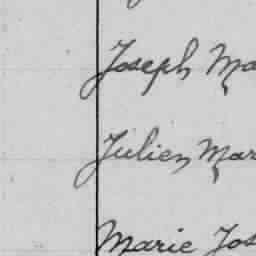 Joseph Ma
Julien Mar
Marie Jos